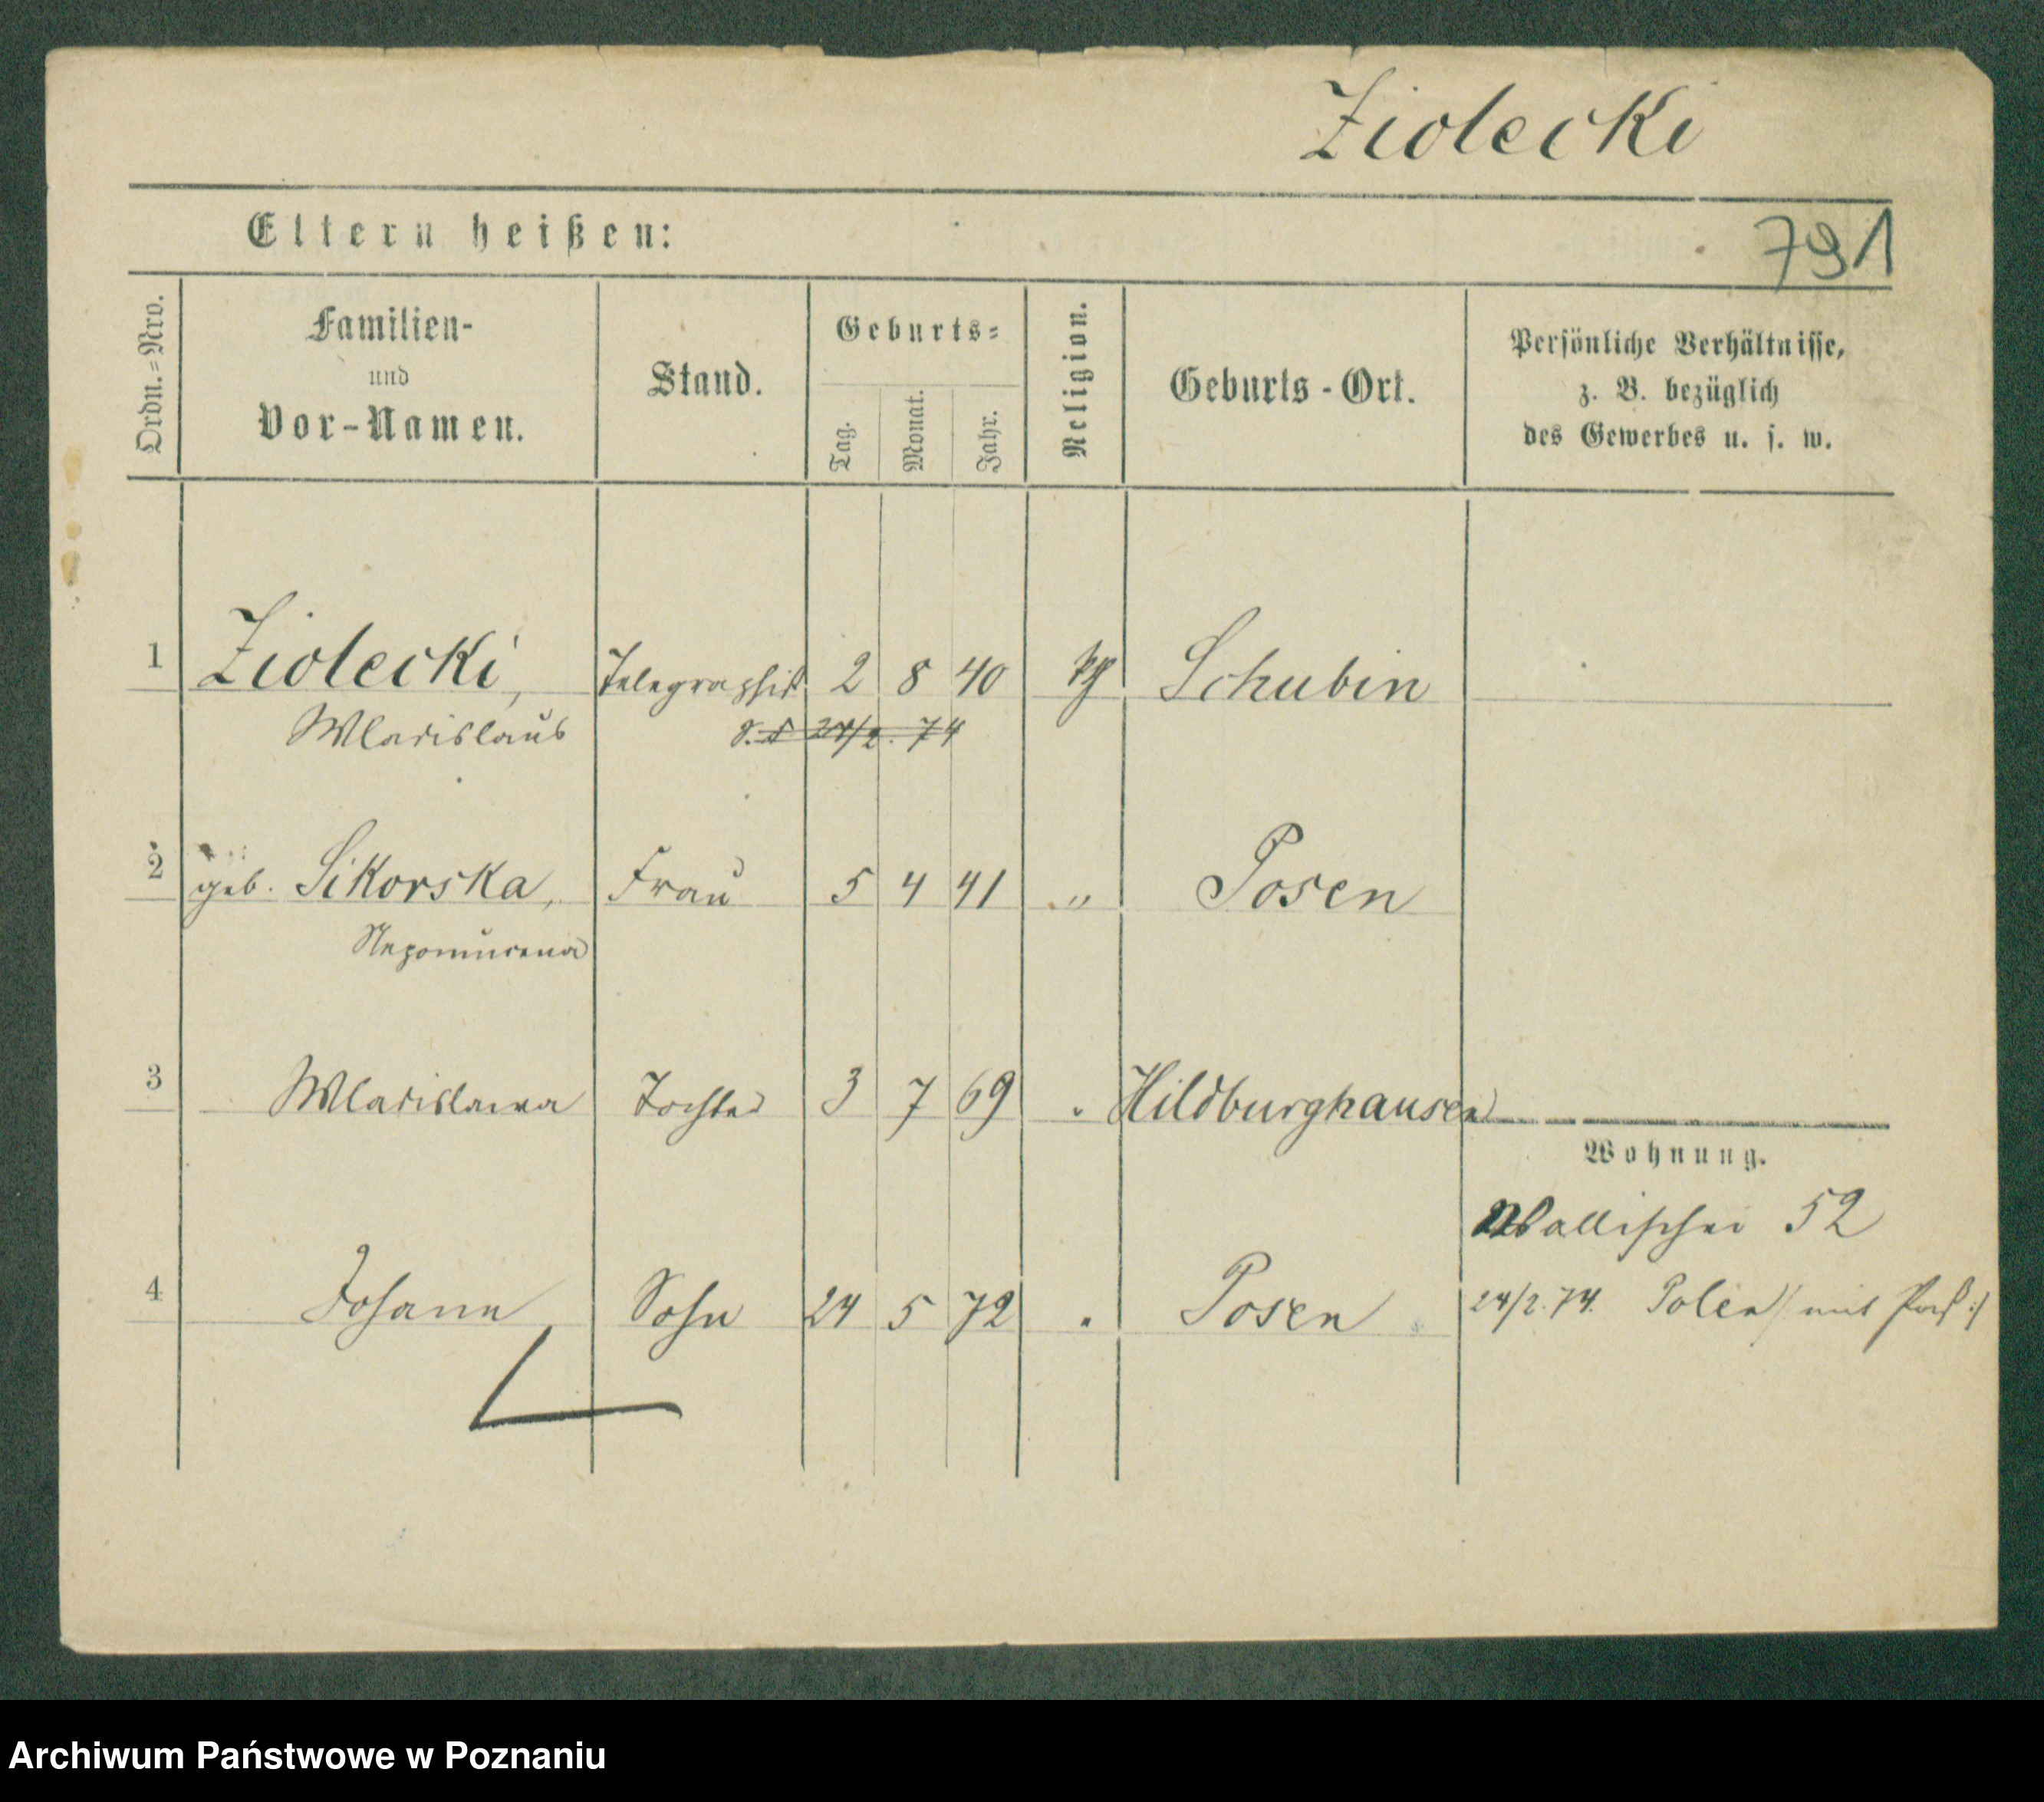 Ziolecki
Eltern heißen:
791
Ordn.=Nro.
Familien-
und
Vor-Namen.
Stand.
Geburts=
Tag.
Monat.
Jahr.
Religion.
Geburts-Ort.
Persönliche Verhältnisse,
z. B. bezüglich
des Gewerbes u. s. w.
1 Ziolecki, Telegraphist 2 8 40 kth Schubin
Wladislaus
24/2. 74
2 geb. Sikorska, Frau 5 4 41 " Posen
Nepomucena
3 Wladislawa Tochter 3 7 69 " Hildburghausen
Wohnung.
Wallischei 52
4 Johann Sohn 24 5 72 " Posen
24/2. 74. Polen /: mit Paß :/
Archiwum Państwowe w Poznaniu